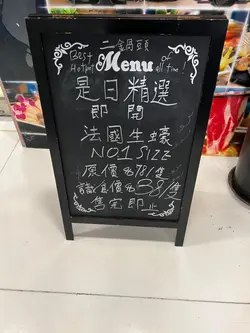 二金局豆頁
Best Hotpot Menu of all time!
是日精選
即開
法國生蠔
NO1 SIZE
原價$78/隻
識食價$38/隻
售完即止